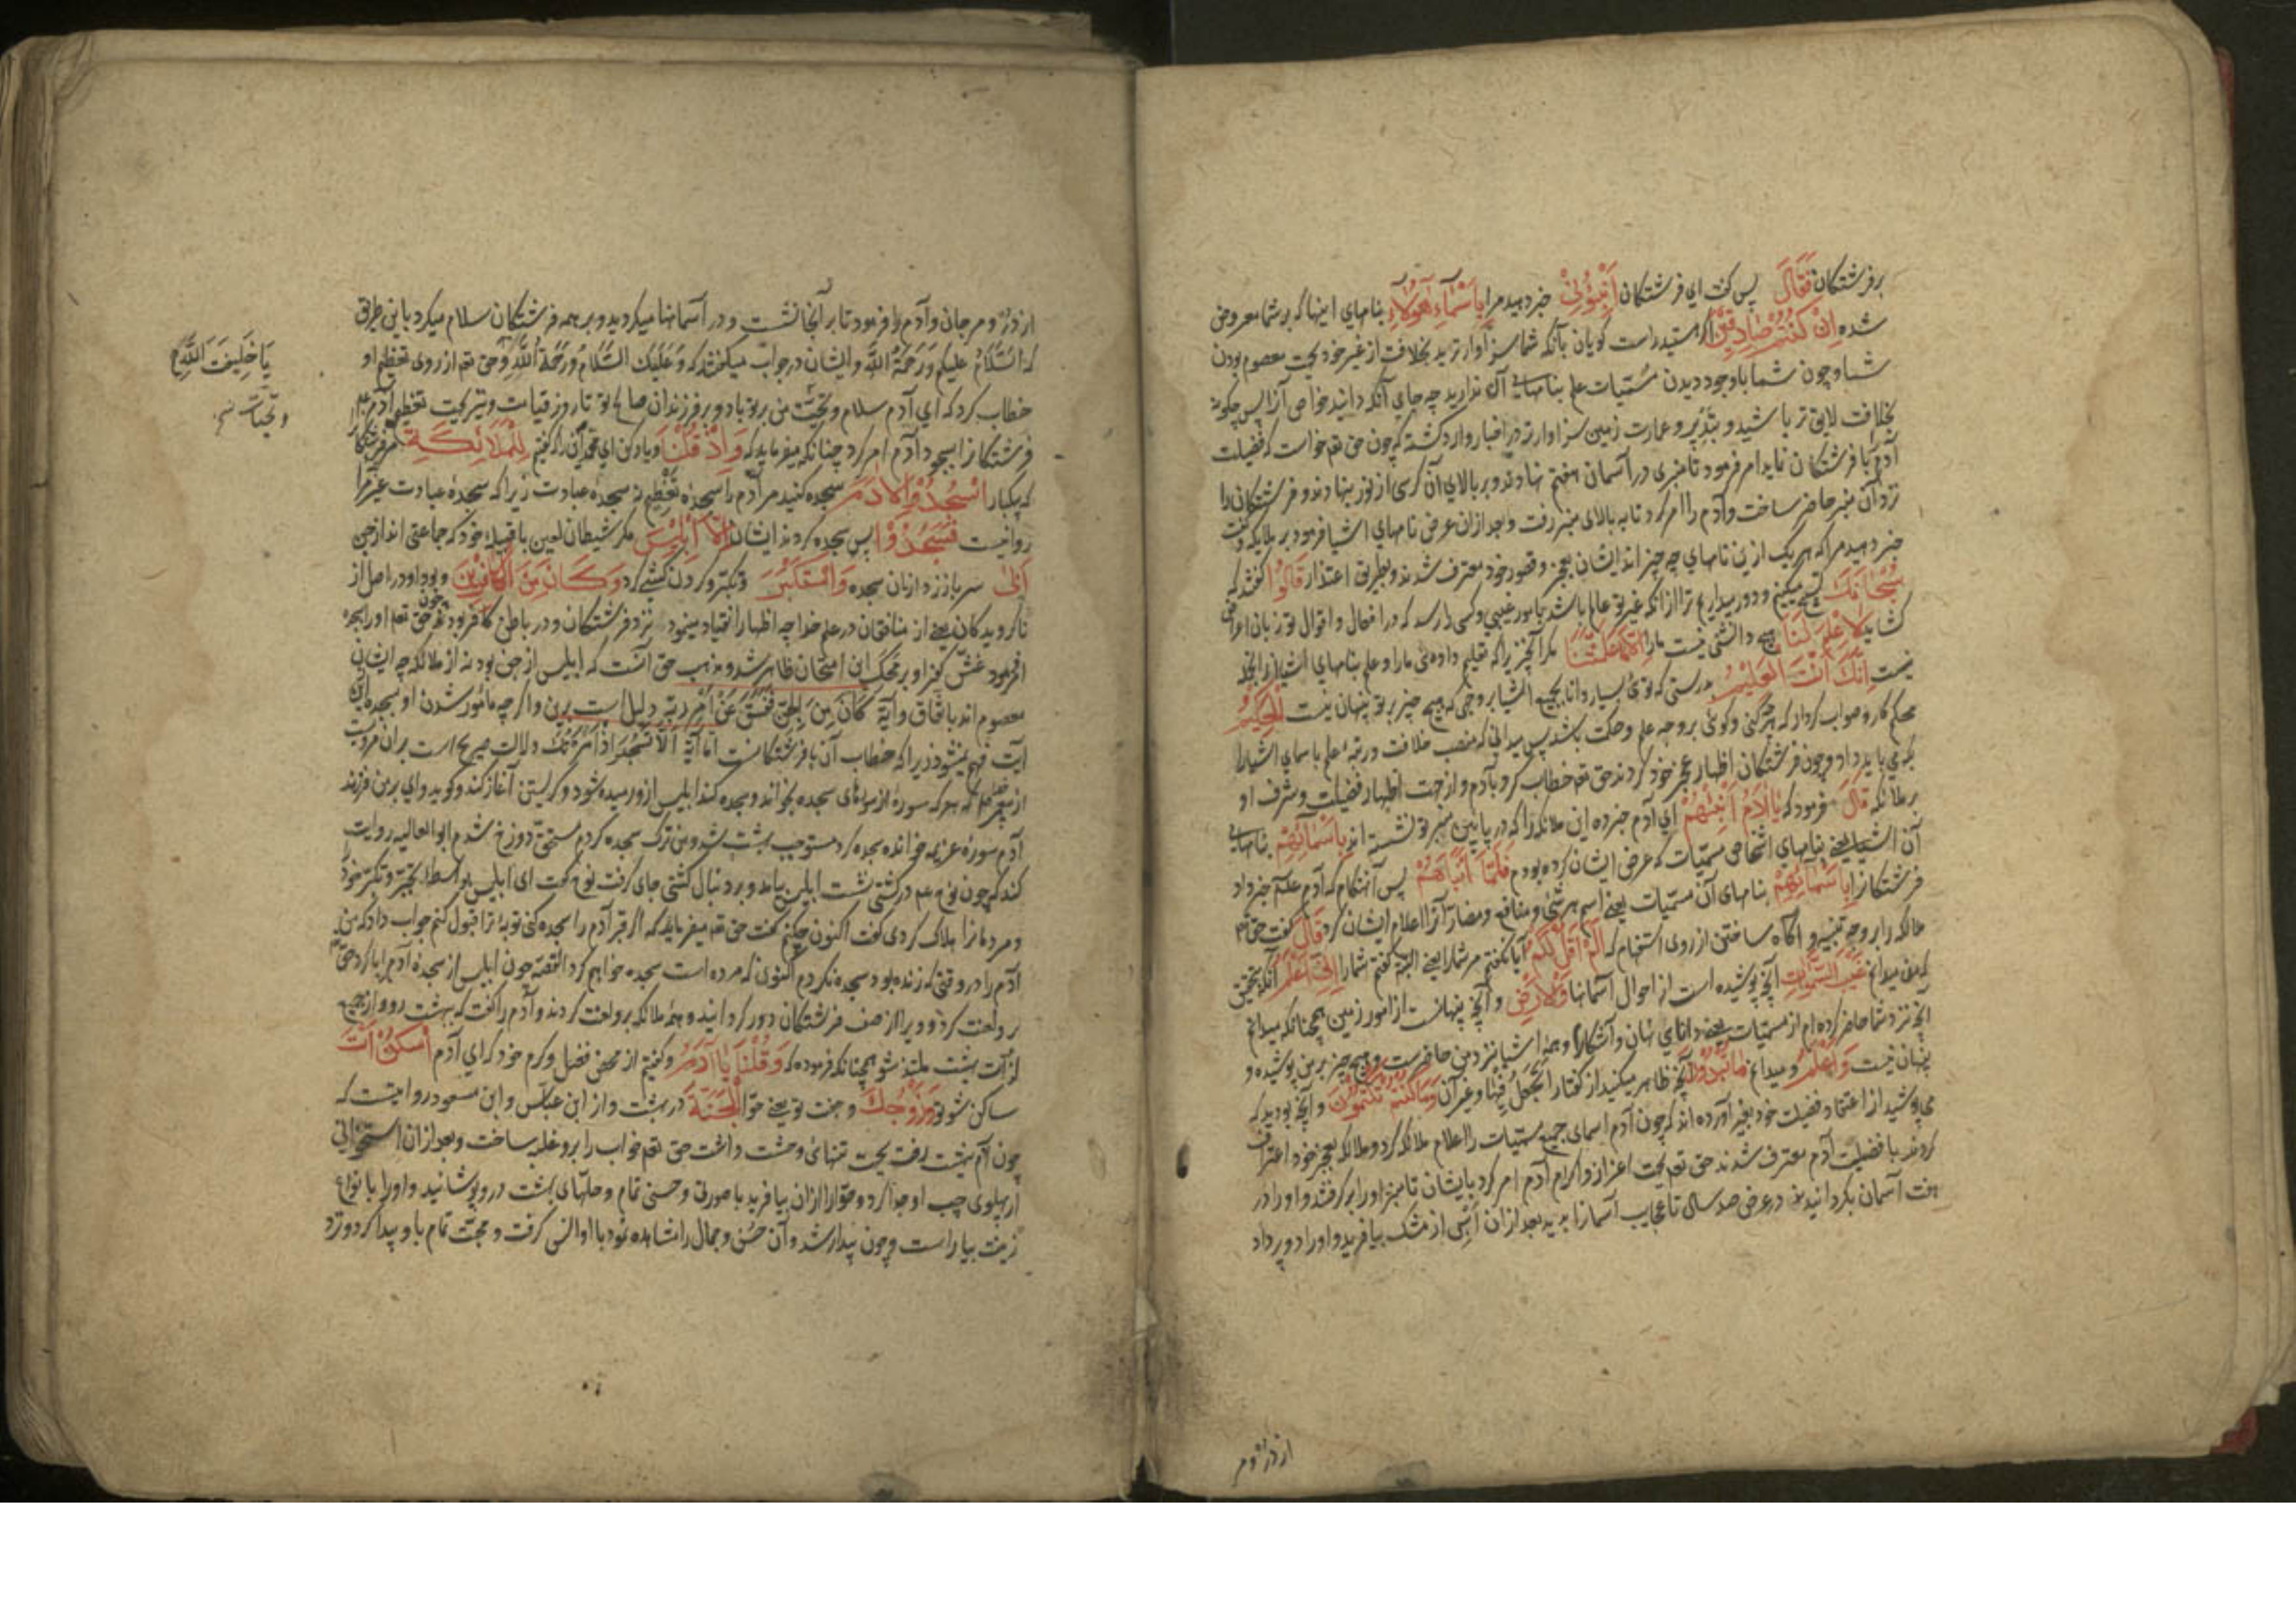 بر فرشتکان فَقَالَ پس کفت ای فرشتکان اَنْبِؤُنِیْ خبر دهید مرا بِاَسْمَاءِ هٰؤُلَاءِ بنامهای اینها که بر شما معروض
شده اِنْ کُنْتُمْ صَادِقِیْنَ اکر هستید راست کویان بآنکه شما سزاوارترید بخلافت از غیر خود بجهت معصوم بودن
شما و چون شما با وجود دیدن مسمّیات علم بنامهای آن ندارید چه جای آنکه دانید خواص آنرا پس چکونه
بخلافت لایق تر باشید و بتدبیر و عمارت زمین سزاوارتر در اخبار وارد کشته که چون حق تعم خواست که فضیلت
آدم با فرشتکان نماید امر فرمود تا منبری در آسمان هفتم نهادند و بر بالای آن کرسی از نور بنهادند و فرشتکان را
نزد آن منبر حاضر ساخت و آدم را امر کرد تا به بالای منبر رفت و بعد از آن عرض نامهای اشیا فرمود بر ملایکه و کفت
خبر دهید مرا که هر یک ازین نامهای چه چیز اند ایشان بعجز و قصور خود معترف شدند و بطریق اعتذار قَالُوا کفتند که
سُبْحَانَکَ تسبیح میکنیم و دور میداریم ترا از آنکه غیر تو عالم باشد بامور غیبی و کسی را رسد که در افعال و اقوال تو زبان اعتراض
کشاید لَاعِلْمَ لَنَا هیچ دانشی نیست مارا اِلَّا مَا عَلَّمْتَنَا مکر آنچیزیرا که تعلیم داده‌ئی مارا و علم بنامهای اشیا از آنجمله
نیست اِنَّکَ اَنْتَ الْعَلِیْمُ بدرستی که توئی بسیار دانا بجمیع اشیا بر وجهی که هیچ چیز بر تو پنهان نیست الْحَکِیْمُ
محکم کار و صواب کردار که هرچه کنی و کوئی بر وجه علم و حکمت باشد پس میدانی که منصب خلافت و رتبهٔ علم باسمای اشیا را
بکه می باید داد و چون فرشتکان اظهار عجز خود کردند حق تعم خطاب کرد بآدم و از جهت اظهار فضیلت و شرف او
بر ملائکه قَالَ فرمود که یَااٰدَمُ اَنْبِئْهُمْ ای آدم خبر ده این ملائکه را که در پایین منبر تو نشسته اند بِاَسْمَائِهِمْ بنامهای
آن اشیا یعنی بنامهای اشخاص مسمّیات که عرض ایشان کرده بودم فَلَمَّا اَنْبَاَهُمْ پس آنهنکام که آدم علم خبر داد
فرشتکانرا بِاَسْمَائِهِمْ بنامهای آن مسمّیات یعنی اسم هر شئی و منافع و مضار آنرا اعلام ایشان کرد قَالَ کفت حق تعم
ملائکه را بر وجه تنبیه و آکاه ساختن از روی استفهام که اَلَمْ اَقُلْ لَکُمْ آیا نکفتم مر شما را یعنی البته کفتم شما را اِنِّیْ اَعْلَمُ آنکه بتحقیق
که من میدانم غَیْبَ السَّمٰوَاتِ آنچه پوشیده است از احوال آسمانها وَالْاَرْضِ و آنچه پنهانست از امور زمین همچنانکه میدانم
آنچه نزد شما حاضر کرده ام از مسمیات یعنی دانای نهان و آشکارا و همهٔ اشیا نزد من حاضرست و هیچ چیز بر من پوشیده و
پنهان نیست وَاَعْلَمُ و میدانم مَاتُبْدُوْنَ آنچه ظاهر میکنید از کفتار اَتَجْعَلُ فِیْهَا و غیر آن وَمَاکُنْتُمْ تَکْتُمُوْنَ و آنچه بودید که
می پوشید از اعتقاد فضیلت خود بغیر آورده اند که چون آدم اسمای جمیع مسمّیات را اعلام ملائکه کرد و ملائکه بعجز خود اعتراف
کردند با فضیلت آدم معترف شدند حق تعم بجهت اعزاز و اکرام آدم امر کرد بایشان تا منبر او را بر کرفتند و او را در
هفت آسمان بکردانیدند در عرض صد سال تا عجایب آسمانرا بدید بعد از آن اسبی از مشک بیافرید و او را دو پر داد
از درّ و م
از درّ و مرجان و آدم را فرمود تا بر آنجا نشست و در آسمانها میکردید و بر همه فرشتکان سلام میکرد باین طریق
که اَلسَّلَامُ علیکم وَرَحْمَةُ اللّٰهِ و ایشان در جواب میکفتند که وَعَلَیْکَ السَّلَامُ وَرَحْمَةُ اللّٰهِ و حق تعم از روی تعظیم او
یَاخَلِیْفَتَ اللّٰهِ
خطاب کرد که ای آدم سلام و تحیّت من بر تو باد و بر فرزندان صالح تو تا روز قیامت و نیز بجهت تعظیم آدم
و تحیّات
فرشتکانرا بسجود آدم امر کرد چنانکه میفرماید که وَاِذْ قُلْنَا و یاد کن ای محمد آن را که کفتیم لِلْمَلَائِکَةِ مر فرشتکانرا
که یکبار اسْجُدُوْا لِاٰدَمَ سجده کنید مر آدم را سجدهٔ تعظیم نه سجدهٔ عبادت زیرا که سجدهٔ عبادت غیر مرا
روا نیست فَسَجَدُوْا پس سجده کردند ایشان اِلَّا اِبْلِیْسَ مکر شیطان لعین با قبیلهٔ خود که جماعتی اند از جن
اَبٰی سر باز زد از آن سجده وَاسْتَکْبَرَ و تکبّر و کردن کشی کرد وَکَانَ مِنَ الْکَافِرِیْنَ و بود او در اصل از
ناکرویدکان یعنی از منافقان در علم خدا چه اظهار انقیاد مینمود نزد فرشتکان و در باطن کافر بود چون حق تعم او را سجده
فرمود غش کفر او بر محک این امتحان ظاهر شد و مذهب حق آنست که ابلیس از جن بود نه از ملائکه چه ایشان
معصوم اند باتفاق و آیهٔ کَانَ مِنَ الْجِنِّ فَفَسَقَ عَنْ اَمْرِ رَبِّهِ دلیل است برین و اکرچه مأمور شدن او بسجده ازین
آیت فهم نمیشود زیرا که خطاب آن با فرشتکانست اما آیهٔ اَلَّا تَسْجُدَ اِذْ اَمَرْتُکَ دلالت صریح است بر آن مرویست
از پیغمبر صلعم که هر که سورهٔ از سورهای سجده بخواند و سجده کند ابلیس از و رمیده شود و کریستن آغاز کند و کوید وای بر من فرزند
آدم سورهٔ عزیمه خوانده سجده کرد مستوجب بهشت شد و من ترک سجده کردم مستحق دوزخ شدم ابو العالیه روایت
کند که چون نوح عم در کشتی نشست ابلیس بیامد و بر دنبال کشتی جای کرفت نوح کفت ای ابلیس بواسطهٔ تکبّر خود خود
و مردمانرا هلاک کردی کفت اکنون چکنم کفت حق تعم میفرماید که اکر قبر آدم را سجده کنی توبهٔ ترا قبول کنم جواب داد که من
آدم را در وقتی که زنده بود سجده نکردم اکنون که مرده است سجده خواهم کرد القصه چون ابلیس از سجدهٔ آدم ابا کرد حق تعم
بر و لعنت کرد و ویرا از صف فرشتکان دور کردانید و همهٔ ملائکه بر و لعنت کردند و آدم را کفت که بهشت رو و از جمیع
لذّات بهشت ملتذ شو همچنانکه فرموده که وَقُلْنَا یَااٰدَمُ و کفتیم از محض فضل و کرم خود که ای آدم اُسْکُنْ اَنْتَ
ساکن شو تو وَزَوْجُکَ و جفت تو یعنی حوّا الْجَنَّةَ در بهشت و از ابن عباس و ابن مسعود روایتست که
چون آدم ببهشت رفت بجهت تنهائی وحشت داشت حق تعم خواب را بر و غلبه ساخت و بعد از آن استخوانی
از پهلوی چپ او جدا کرد و حوّا را از آن بیافرید با صورتی و حسنی تمام و حلّهای بهشت در و پوشانید و او را بانواع
زینت بیاراست و چون بیدار شد و آن حُسْن و جمال را مشاهده نمود با او انس کرفت و محبّت تمام باو پیدا کرد و نزد